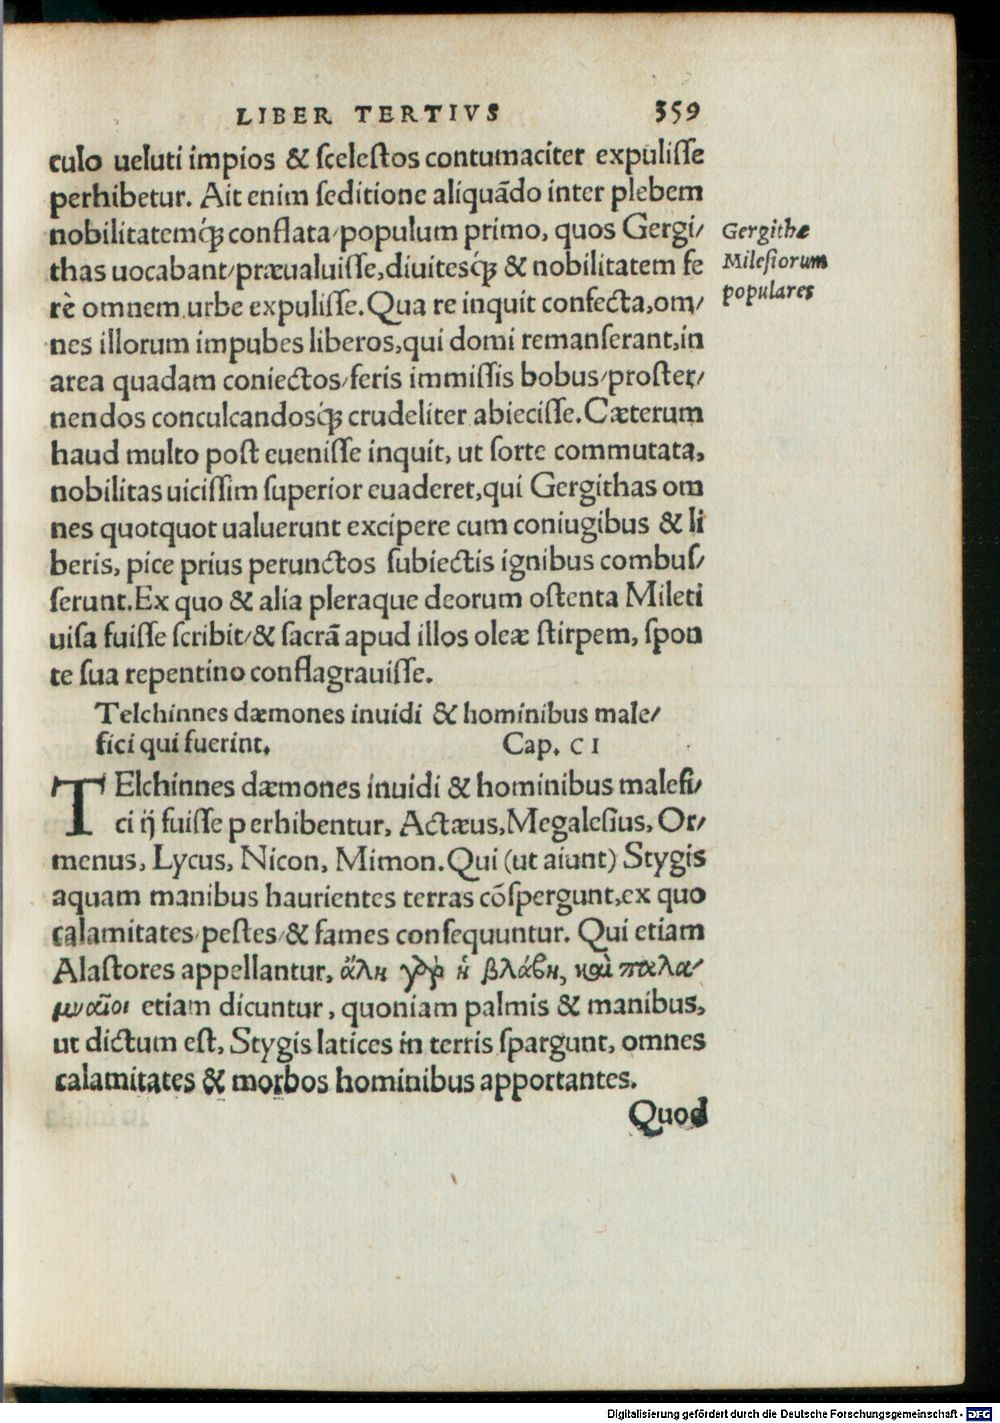 LIBER TERTIVS 359
culo ueluti impios & sceleſtos contumaciter expuliſſe
perhibetur. Ait enim ſeditione aliquãdo inter plebem
nobilitatemq́ꝫ conflata/populum primo, quos Gergi/
thas uocabant/præualuiſſe,diuitesq́ꝫ & nobilitatem fe
rè omnem urbe expuliſſe.Qua re inquit confecta,om/
nes illorum impubes liberos,qui domi remanſerant,in
area quadam coniectos/feris immiſſis bobus/proſter/
nendos conculcandosq́ꝫ crudeliter abieciſſe.Cæterum
haud multo poſt eueniſſe inquit, ut ſorte commutata,
nobilitas uiciſſim ſuperior euaderet,qui Gergithas om
nes quotquot ualuerunt excipere cum coniugibus & li
beris, pice prius perunctos ſubiectis ignibus combuſ/
ſerunt.Ex quo & alia pleraque deorum oſtenta Mileti
uiſa fuiſſe ſcribit/& ſacrã apud illos oleæ ſtirpem, ſpon
te ſua repentino conflagrauiſſe.
Gergithæ
Mileſiorum
populares
Telchinnes dæmones inuidi & hominibus male/
fici qui fuerint. Cap. CI
TElchinnes dæmones inuidi & hominibus malefi/
ci ij fuiſſe perhibentur, Actæus,Megaleſius, Or/
menus, Lycus, Nicon, Mimon.Qui (ut aiunt) Stygis
aquam manibus haurientes terras cõſpergunt,ex quo
calamitates/peſtes/& fames conſequuntur. Qui etiam
Alaſtores appellantur, ἄλη γὰρ ἡ βλάβη, καὶ παλα/
μναῖοι etiam dicuntur, quoniam palmis & manibus,
ut dictum eſt, Stygis latices in terris ſpargunt, omnes
calamitates & morbos hominibus apportantes.
Quod
Digitalisierung gefördert durch die Deutsche Forschungsgemeinschaft - DFG